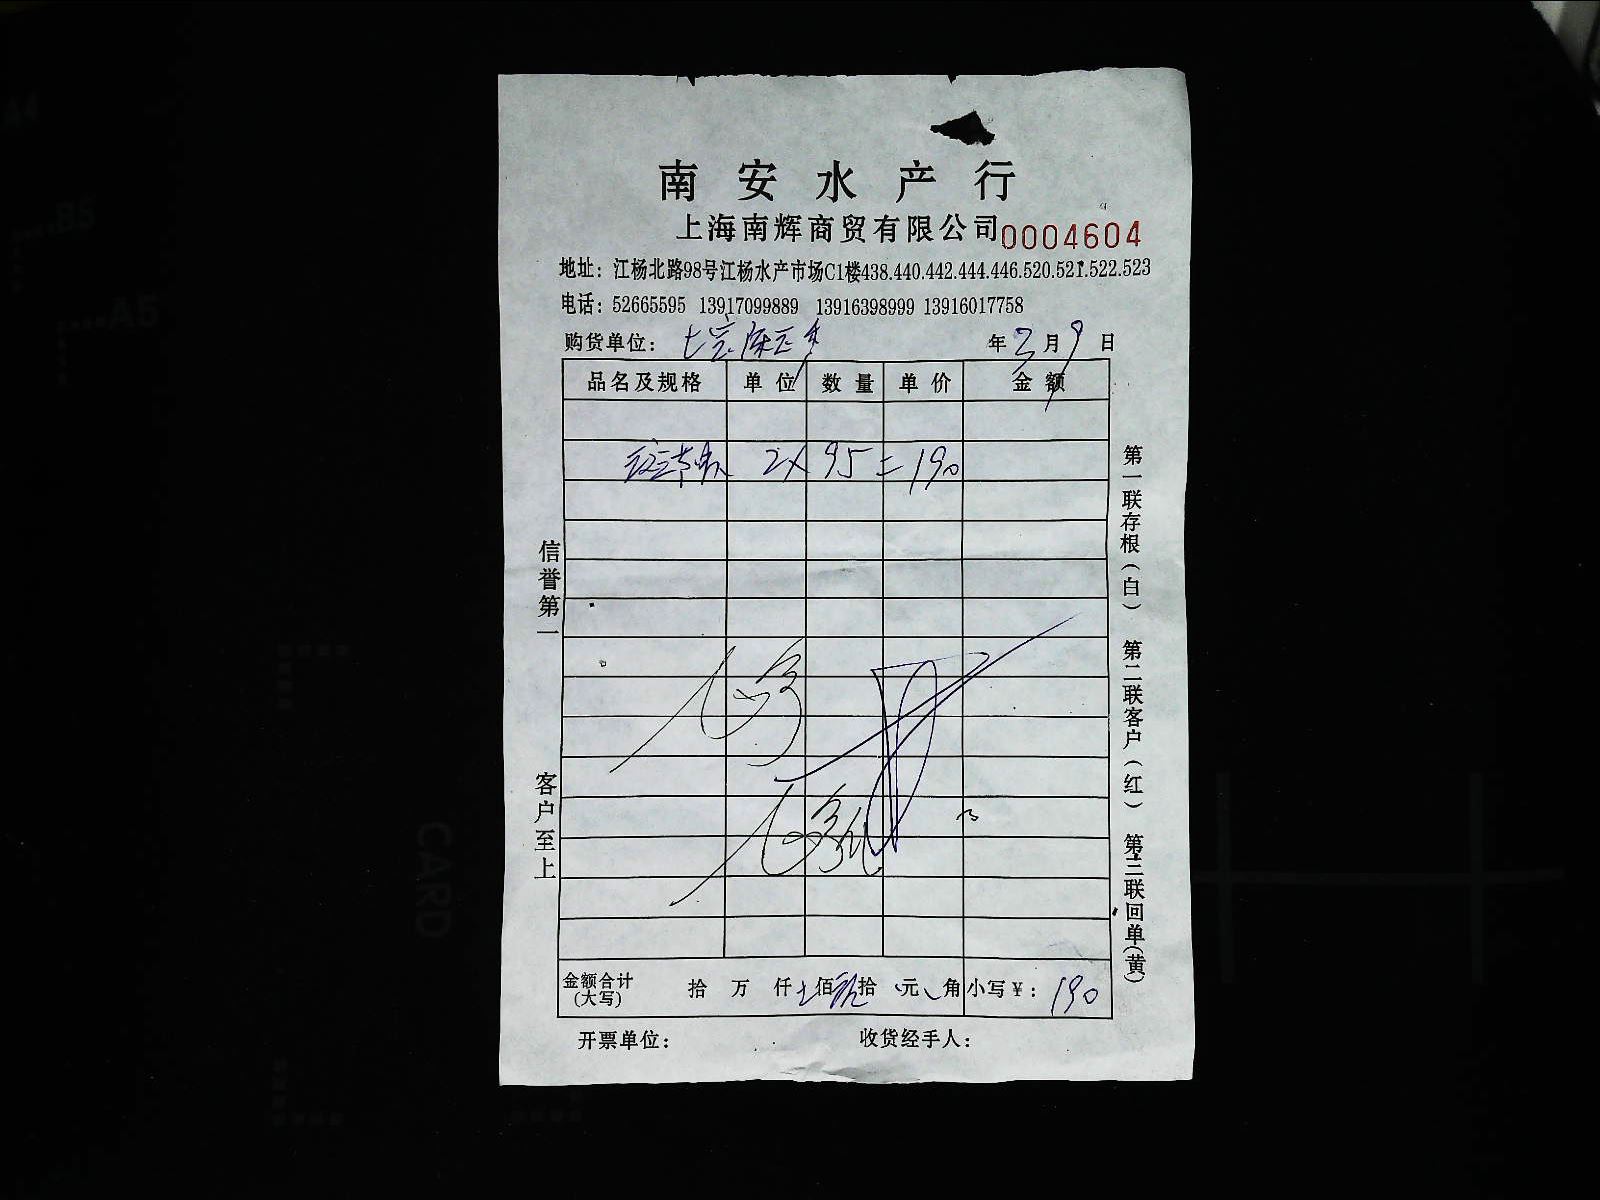 南安水产行
上海南辉商贸有限公司 0004604
地址：江杨北路98号江杨水产市场C1楼438.440.442.444.446.520.521.522.523
电话：52665595 13917099889 13916398999 13916017758
购货单位：
年3月9日
品名及规格 单位 数量 单价 金额
2x 95=190
信誉第一
客户至上
第一联存根（白） 第二联客户（红） 第三联回单（黄）
金额合计（大写） 拾 万 仟 佰 拾 元 角 小写¥：190
开票单位： 收货经手人：